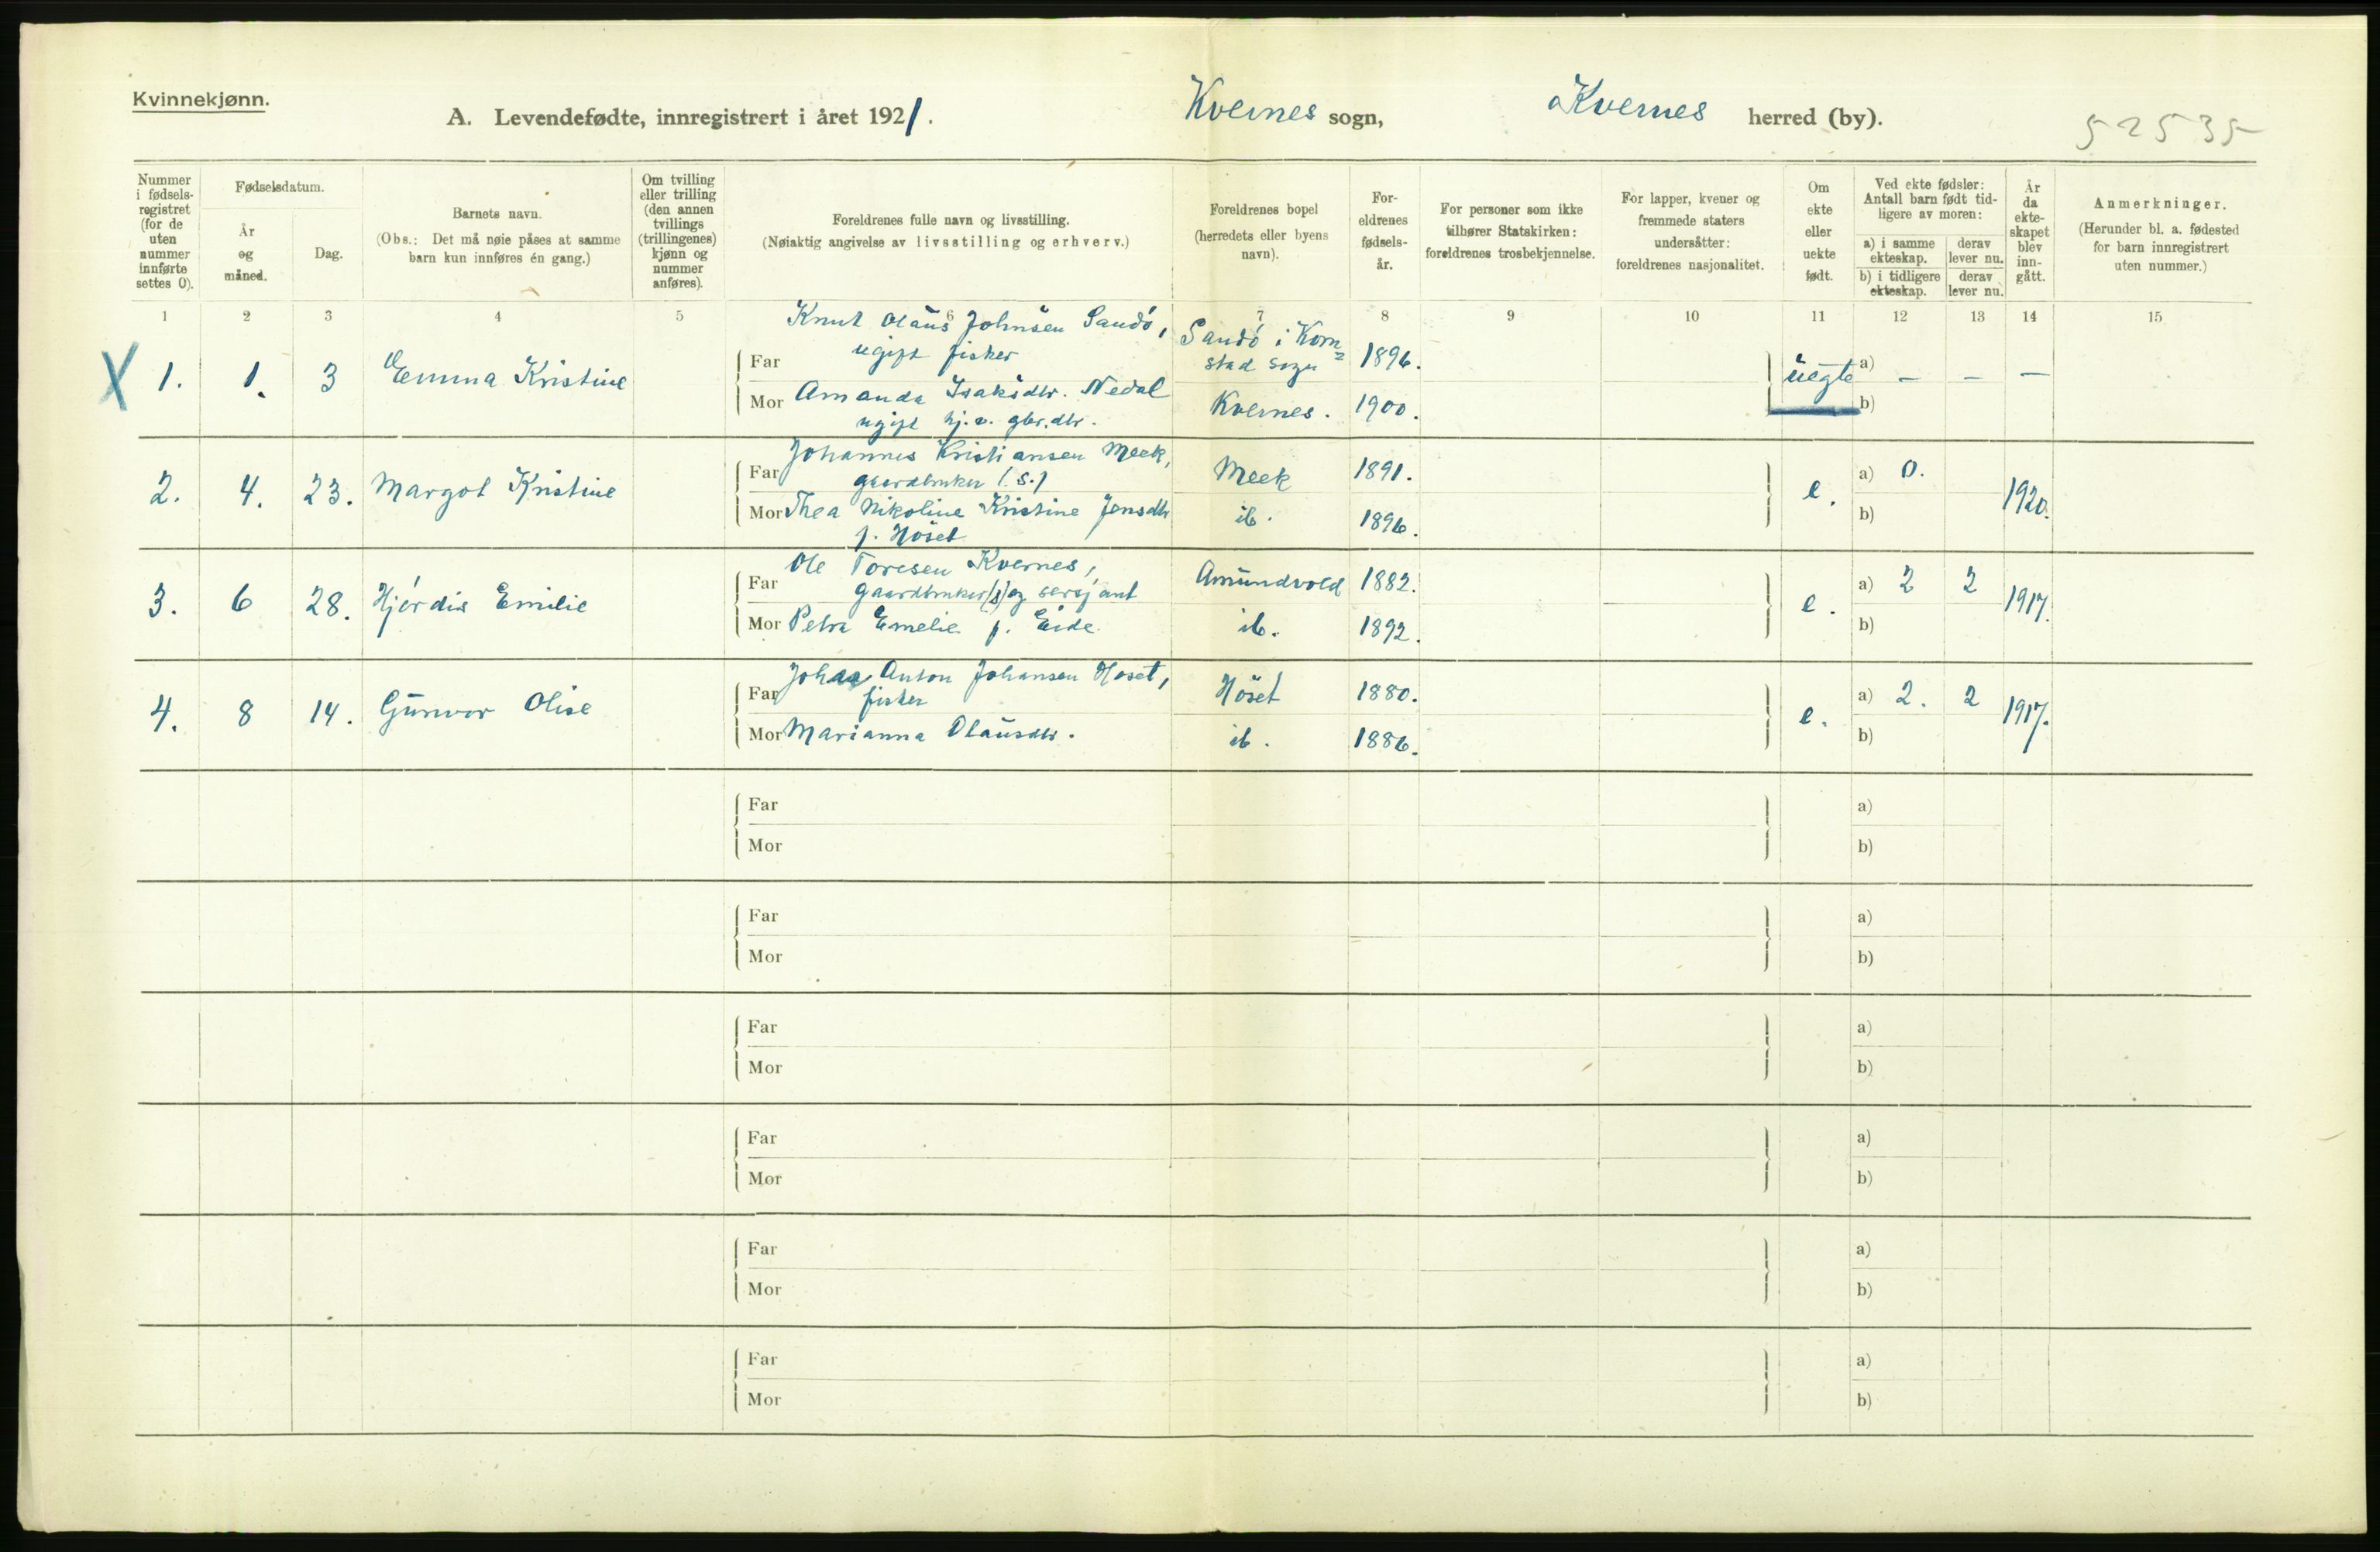 Kvinnekjønn.
A. Levendefødte, innregistrert i året 1921. Kvernes sogn, Kvernes herred (by).
52535
Nummer i fødsels-registret (for de uten nummer innførte settes 0).
Fødselsdatum.
År og måned.
Dag.
Barnets navn.
(Obs.: Det må nøie påses at samme barn kun innføres én gang.)
Om tvilling eller trilling (den annen tvillings (trillingenes) kjønn og nummer anføres).
Foreldrenes fulle navn og livsstilling.
(Nøiaktig angivelse av livsstilling og erhverv.)
Foreldrenes bopel (herredets eller byens navn).
For-eldrenes fødsels-år.
For personer som ikke tilhører Statskirken: foreldrenes trosbekjennelse.
For lapper, kvener og fremmede staters undersåtter: foreldrenes nasjonalitet.
Om ekte eller uekte født.
Ved ekte fødsler: Antall barn født tid-ligere av moren:
a) i samme ekteskap.
derav lever nu.
b) i tidligere ekteskap.
derav lever nu.
År da ekte-skapet blev inn-gått.
Anmerkninger.
(Herunder bl. a. fødested for barn innregistrert uten nummer.)
1 2 3 4 5 6 7 8 9 10 11 12 13 14 15
X 1. 1. 3 Emma Kristine
Far Knut Olaus Johnsen Sandö,
ugift fisker
Sandö i Korn=
stad sogn
1896.
Mor Amanda Isaksdtr. Nedal
ugift hj.v. gbr.dtr.
Kvernes. 1900.
uegte a) – – –
b)
2. 4. 23. Margot Kristine
Far Johannes Kristiansen Meek,
gaardbruker (S.)
Meek 1891.
Mor Thea Nikoline Kristine Jensdtr
f. Höset
ib. 1896.
e. a) 0. 1920.
b)
3. 6 28. Hjördis Emilie
Far Ole Toresen Kvernes,
gaardbruker (s) og sersjant
Amundvold 1882.
Mor Petra Emelie f. Eide
ib. 1892.
e. a) 2 2 1917.
b)
4. 8 14. Gunvor Olise
Far Johan Anton Johansen Höset,
fisker
Höset 1880.
Mor Marianna Olausdtr.
ib. 1886.
e. a) 2. 2 1917.
b)
Far a)
Mor b)
Far a)
Mor b)
Far a)
Mor b)
Far a)
Mor b)
Far a)
Mor b)
Far a)
Mor b)